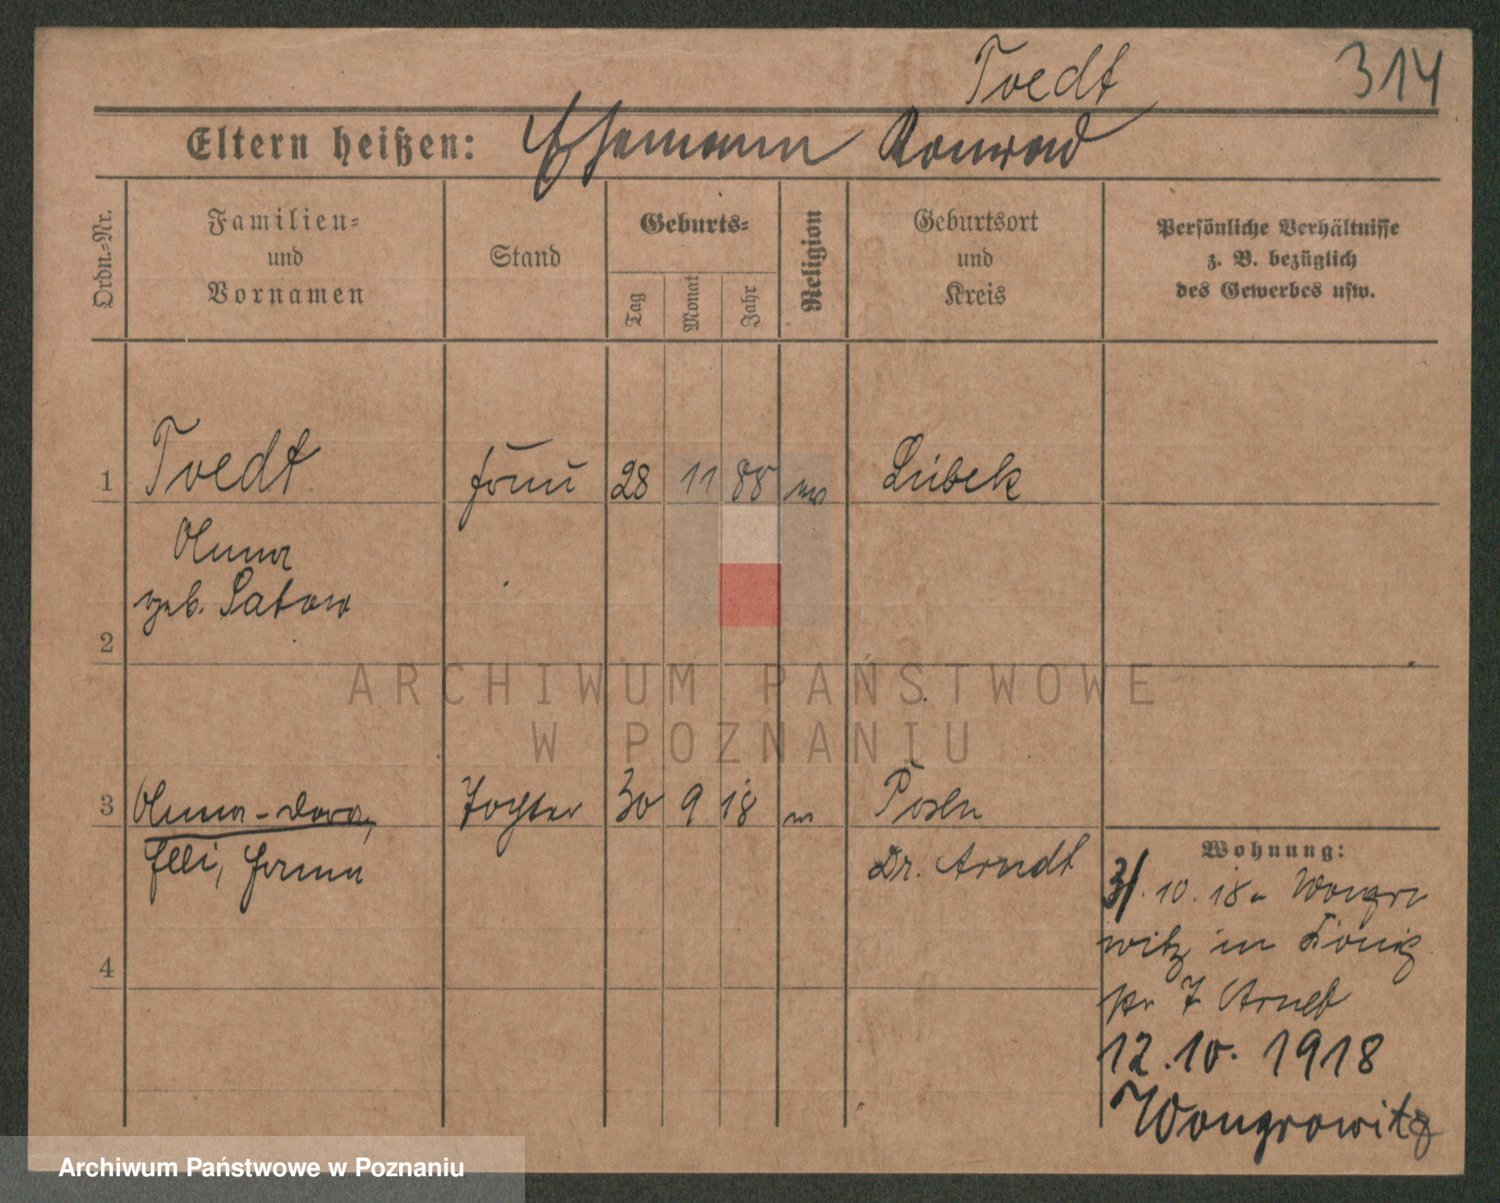 Tvedt 314
Eltern heißen: Ehemann Konrad
Ordn.-Nr.
Familien-
und
Vornamen
Stand
Geburts-
Tag
Monat
Jahr
Religion
Geburtsort
und
Kreis
Persönliche Verhältnisse
z. B. bezüglich
des Gewerbes usw.
1 Tvedt 28 11 88 Lübek
Anna
geb. Satow
2
ARCHIWUM PAŃSTWOWE
W POZNANIU
3 Anna-Dora, Tochter 30 9 18 Posen
Elli, Dr. Arndt
4
Wohnung:
31.10.18. Wongro
witz in
Arndt
12.10.1918
Wongrowitz
Archiwum Państwowe w Poznaniu